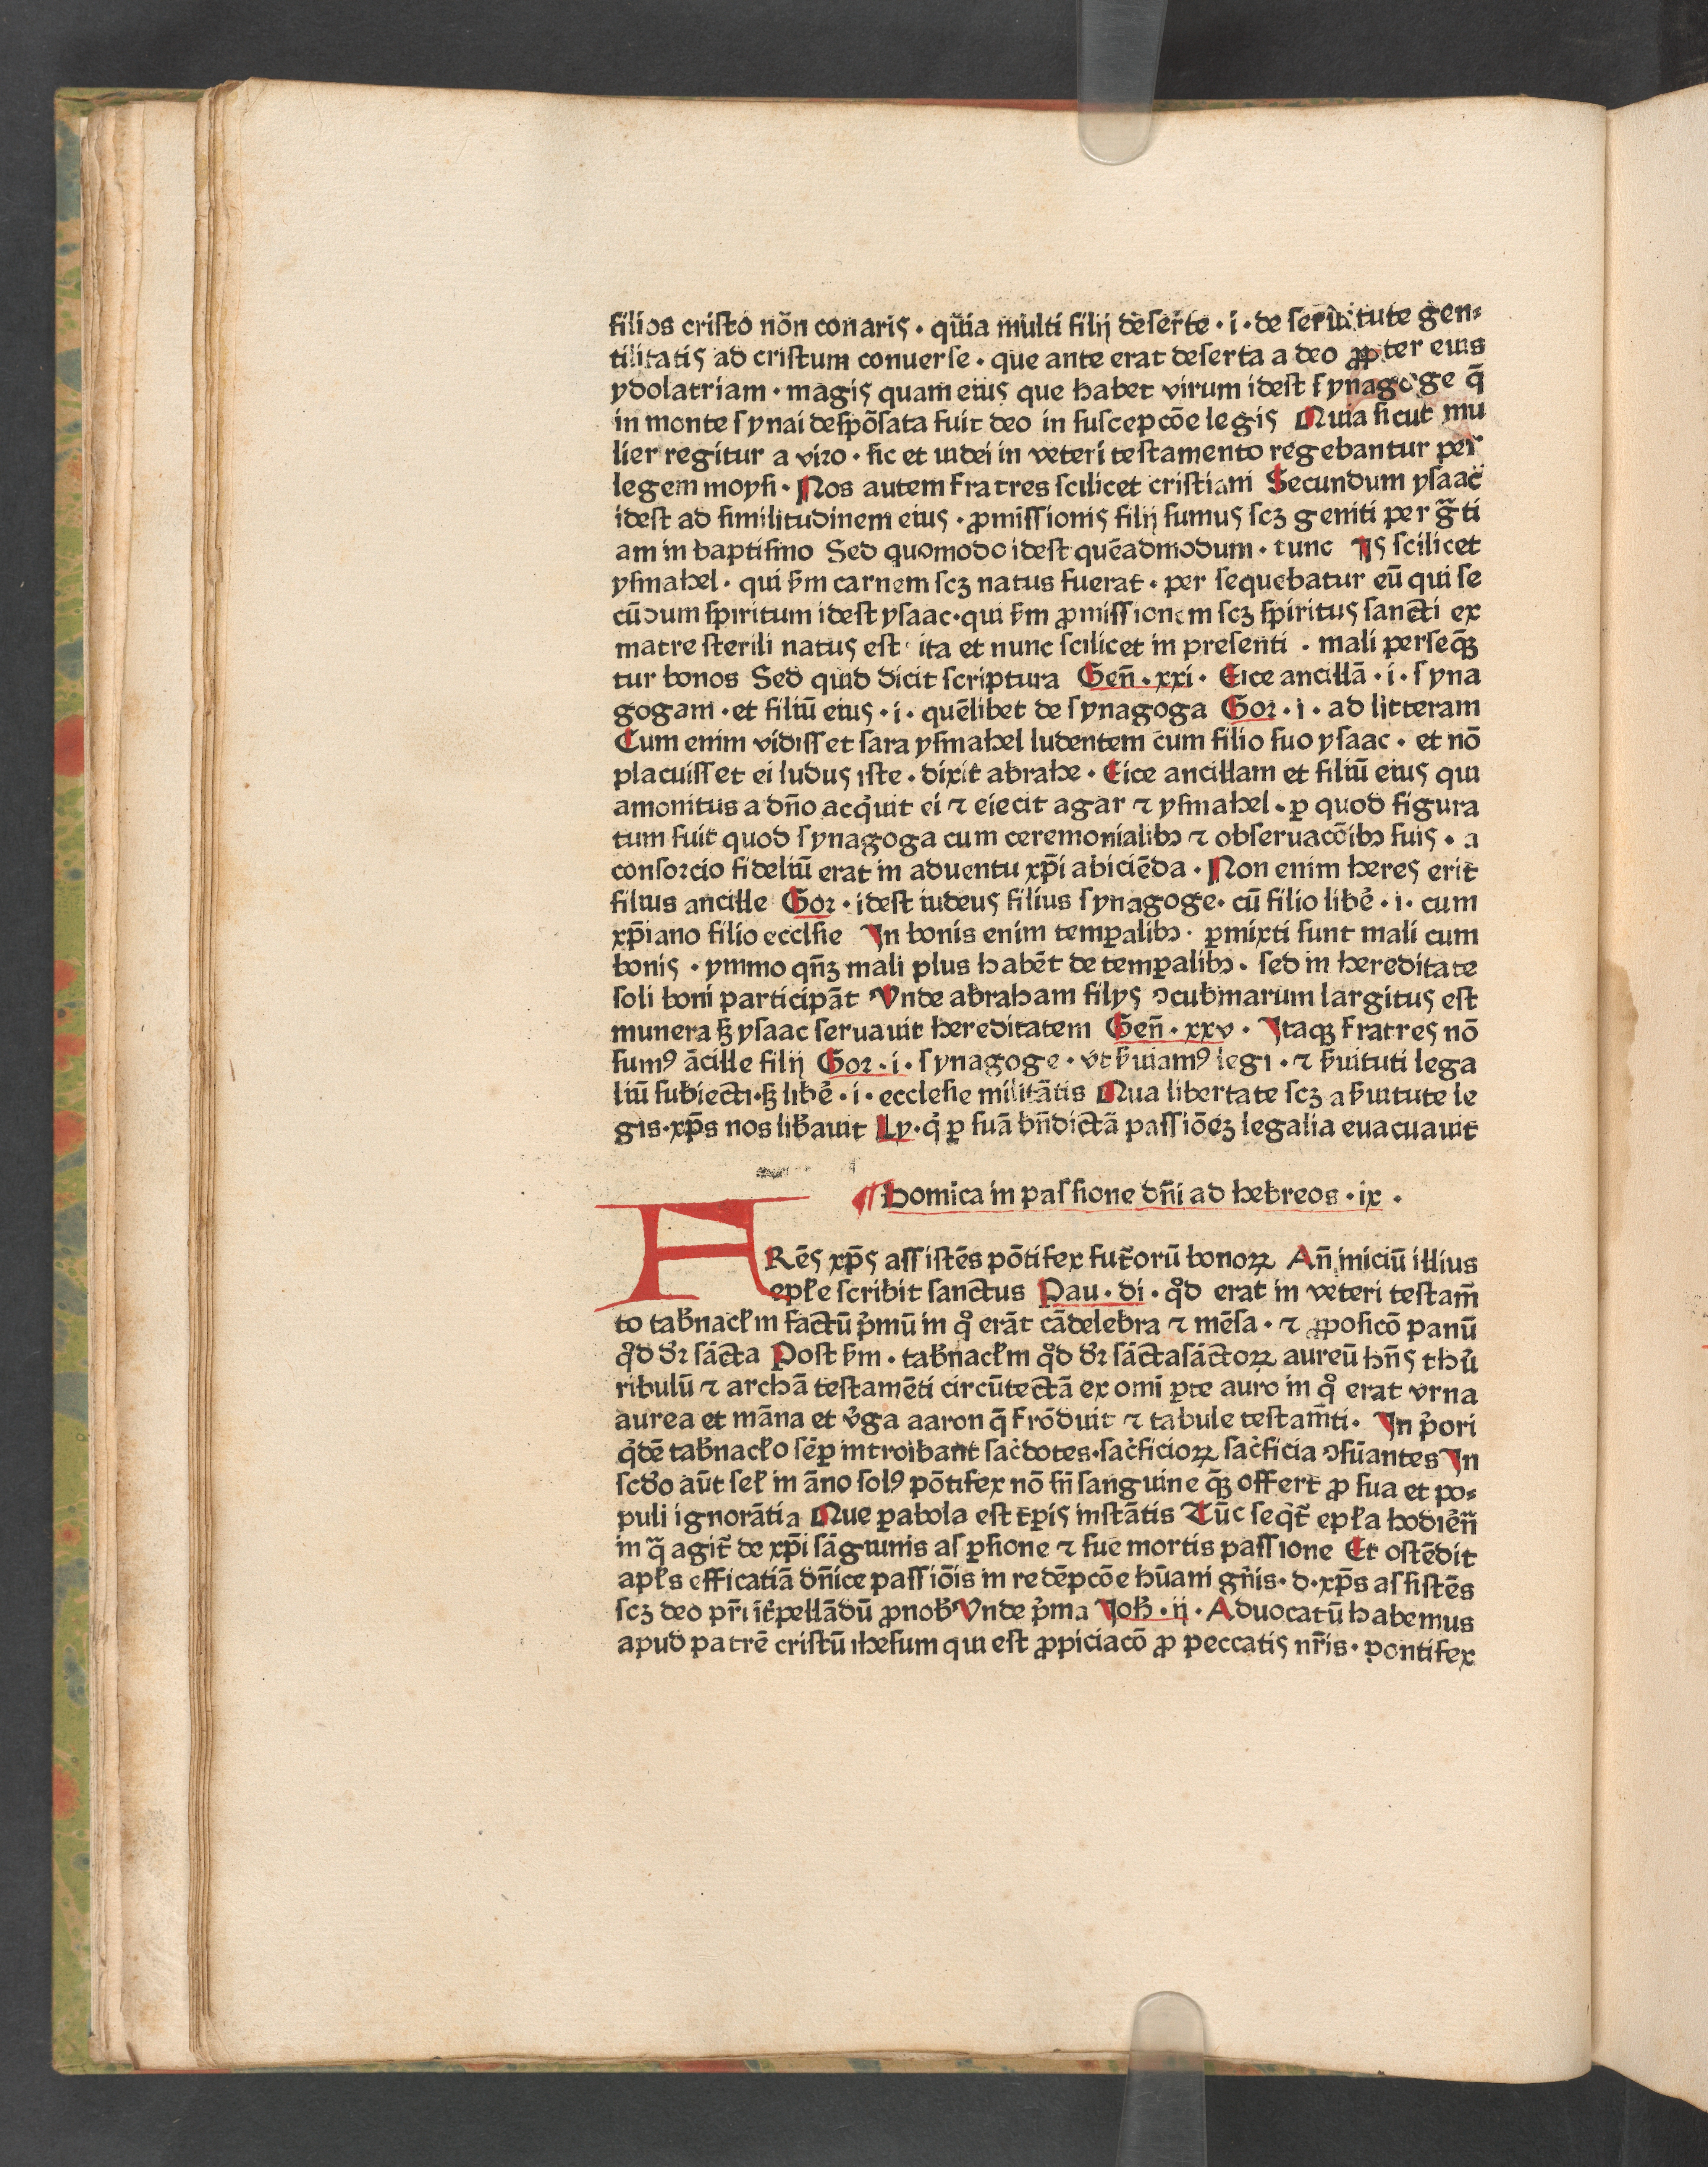 filios cristo nõn conaris · quia multi filij deserte · i · de seruitute gen⸗
tilitatis ad cristum conuerse · que ante erat deserta a deo ꝓpter eius
ydolatriam · magis quam eius que habet virum idest synagoge q̄
in monte synai despõsata fuit deo in suscepcõe legis Quia sicut mu
lier regitur a viro · sic et iudei in veteri testamento regebantur per
legem moysi · Nos autem fratres scilicet cristiani Secundum ysaac
idest ad similitudinem eius · ꝓmissionis filij sumus scꝫ geniti per gͣti
am in baptismo Sed quomodo idest quēadmodum · tunc Is scilicet
ysmahel · qui ẜm carnem scꝫ natus fuerat · per sequebatur eū qui se
cūdum spiritum idest ysaac · qui ẜm ꝓmissionem scꝫ spiritus sancti ex
matre sterili natus est · ita et nunc scilicet in presenti · mali perseq̄ꝫ
tur bonos Sed quid dicit scriptura Geñ · xxi · Eice ancillā · i · syna
gogam · et filiū eius · i · quēlibet de synagoga Gor · i · ad litteram
Cum enim vidisset sara ysmahel ludentem cum filio suo ysaac · et nō
placuisset ei ludus iste · dixit abrahe · Eice ancillam et filiū eius qui
amonitus a dño acq̇uit ei ⁊ eiecit agar ⁊ ysmahel · ꝑ quod figura
tum fuit quod synagoga cum ceremonialibꝫ ⁊ obseruacõibꝫ suis · a
consorcio fideliū erat in aduentu xp̄i abiciēda · Non enim heres erit
filius ancille Gor · idest iudeus filius synagoge · cū filio libē · i · cum
xp̄iano filio ecclsie In bonis enim temꝑalibꝫ · ꝑmixti sunt mali cum
bonis · ymmo qñꝫ mali plus habēt de temꝑalibꝫ · sed in hereditate
soli boni participāt Vnde abraham filys ↄcubinarum largitus est
munera sꝫ ysaac seruauit hereditatem Geñ · xxv · Itaqꝫ fratres nō
sumꝰ ācille filij Gor · i · synagoge · vt ẜuiamꝰ legi · ⁊ ẜuituti lega
liū subiecti · sꝫ libē · i · ecclesie militātis Qua libertate scꝫ a ẜuitute le
gis · xp̄s nos lib̄auit Ly · q̇ ꝑ suā bñdictā passiõeꝫ legalia euacuauit
¶ Domica in passione dñi ad hebreos · ix ·
ARēs xp̄s assistēs põtifex fut̄orū bonoꝝ Añ iniciū illius
epłe scribit sanctus Pau · di · qͦd erat in veteri testam̄
to tab̄nacłm factū p̍mū in qͦ erāt cādelebra ⁊ mēsa · ⁊ ꝓposicõ panū
qͦd dr̄ sācta Post ẜm · tab̄nacłm qͦd dr̄ sāctasāctoꝝ aureū hñs thu̍
ribulū ⁊ archā testamēti circūtectā ex omī ꝑte auro in qͦ erat vrna
aurea et māna et v̍ga aaron q̄ frõduit ⁊ tabule testam̄ti · In p̍ori
q̍dē tab̄nacło sēꝑ introibant sac̍dotes · sac̍ficioꝝ sac̍ficia ↄsūantes In
scdo aūt seł in āno solꝰ põtifex nõ sñ sanguine q̄ꝫ offert ꝓ sua et po⸗
puli ignorātia Que ꝑabola est tꝑis instātis Tūc seq̇t̄ epła hodiēñ
in qͣ agit̄ de xp̄i sāguinis asꝑsione ⁊ sue mortis passione Et ostēdit
apłs efficatiā dñice passiõis in redēpcõe hūani gñis · d · xp̄s assistēs
scꝫ deo pr̄i īt̄pellādū ꝓ nob̄ Vnde p̍ma Joh̄ · ij · Aduocatū habemus
apud patrē cristū ihesum qui est ꝓpiciacõ ꝓ peccatis nr̄is · pontifex